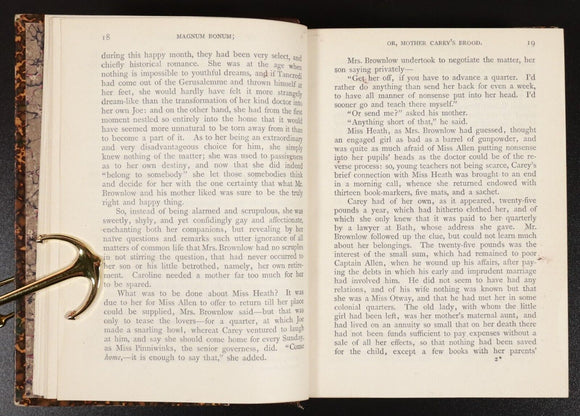 18 MAGNUM BONUM;
during this happy month, they had been very select, and
chiefly historical romance. She was at the age when
nothing is impossible to youthful dreams, and if Tancredi
had come out of the Gerusalemme and thrown himself at
her feet, she would hardly have felt it more strangely
dream-like than the transformation of her kind doctor into
her own Joe: and on the other hand, she had from the first
moment nestled so entirely into the home that it would
have seemed more unnatural to be torn away from it than
to become a part of it. As to her being an extraordinary
and very disadvantageous choice for him, she simply
knew nothing of the matter; she was used to passiveness
as to her own destiny, and now that she did indeed
"belong to somebody" she let those somebodies think
and decide for her with the one certainty that what Mr.
Brownlow and his mother liked was sure to be the truly
right and happy thing.
So, instead of being alarmed and scrupulous, she was
sweetly, shyly, and yet confidingly gay and affectionate,
enchanting both her companions, but revealing by her
naïve questions and remarks such utter ignorance of all
matters of common life that Mrs. Brownlow had no scruples
in not stirring the question, that had never occurred to
her son or his little betrothed, namely, her own retire-
ment. Caroline needed a mother far too much for her
to be spared.
What was to be done about Miss Heath? It was
due to her for Miss Allen to offer to return till her place
could be supplied, Mrs. Brownlow said—but that was
only to tease the lovers—for a quarter, at which Joe
made a snarling howl, whereat Carey ventured to laugh
at him, and say she should come home for every Sunday,
as Miss Pinniwinks, the senior governess, did. "Come
home,—it is enough to say that," she added.
OR, MOTHER CAREY'S BROOD. 19
Mrs. Brownlow undertook to negotiate the matter, her
son saying privately—
"Get her off, if you have to advance a quarter. I'd
rather do anything than send her back for even a week,
to have all manner of nonsense put into her head. I'd
sooner go and teach there myself."
"Or send me?" asked his mother.
"Anything short of that," he said.
Miss Heath, as Mrs. Brownlow had guessed, thought
an engaged girl as bad as a barrel of gunpowder, and
was quite as much afraid of Miss Allen putting nonsense
into her pupils' heads as the doctor could be of the re-
verse process: so, young teachers not being scarce, Carey's
brief connection with Miss Heath was brought to an end
in a morning call, whence she returned endowed with
thirteen book-markers, five mats, and a sachet.
Carey had of her own, as it appeared, twenty-five
pounds a year, which had hitherto clothed her, and of
which she only knew that it was paid to her quarterly
by a lawyer at Bath, whose address she gave. Mr.
Brownlow followed up the clue, but could not learn much
about her belongings. The twenty-five pounds was the
interest of the small sum, which had remained to poor
Captain Allen, when he wound up his affairs, after pay-
ing the debts in which his early and imprudent marriage
had involved him. He did not seem to have had any
relations, and of his wife nothing was known but that
she was a Miss Otway, and that he had met her in some
colonial quarters. The old lady, with whom the little
girl had been left, was her mother's maternal aunt, and
had lived on an annuity so small that on her death there
had not been funds sufficient to pay expenses without a
sale of all her effects, so that nothing had been saved
for the child, except a few books with her parents'
2*